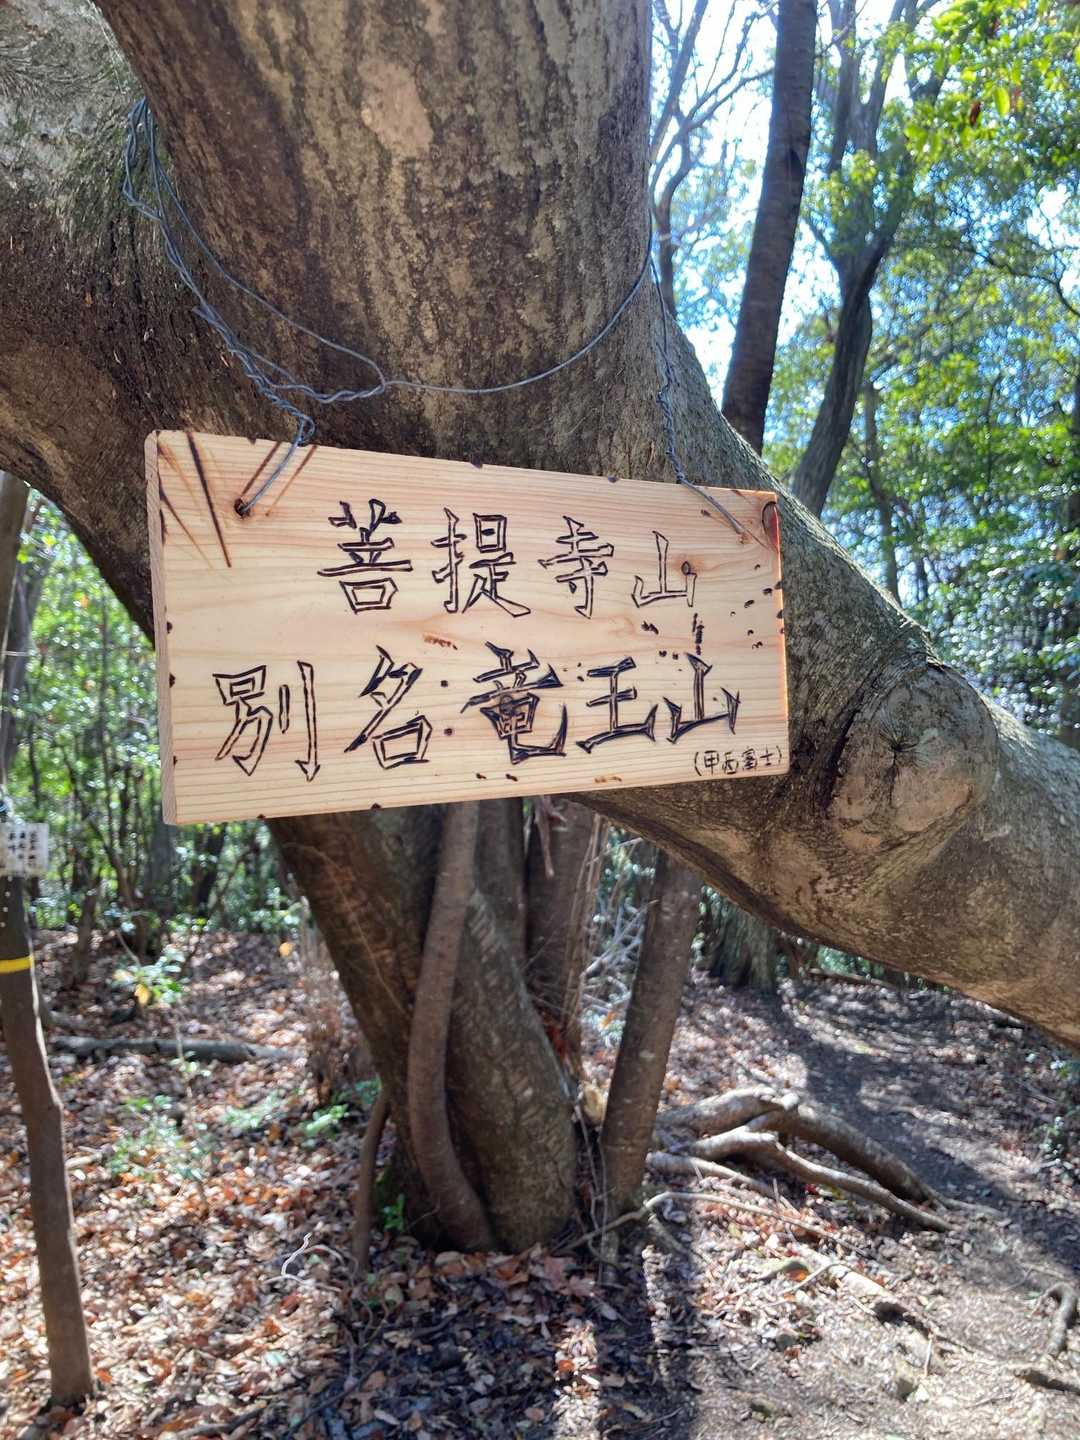 菩提寺山
別名:竜王山
(甲西富士)